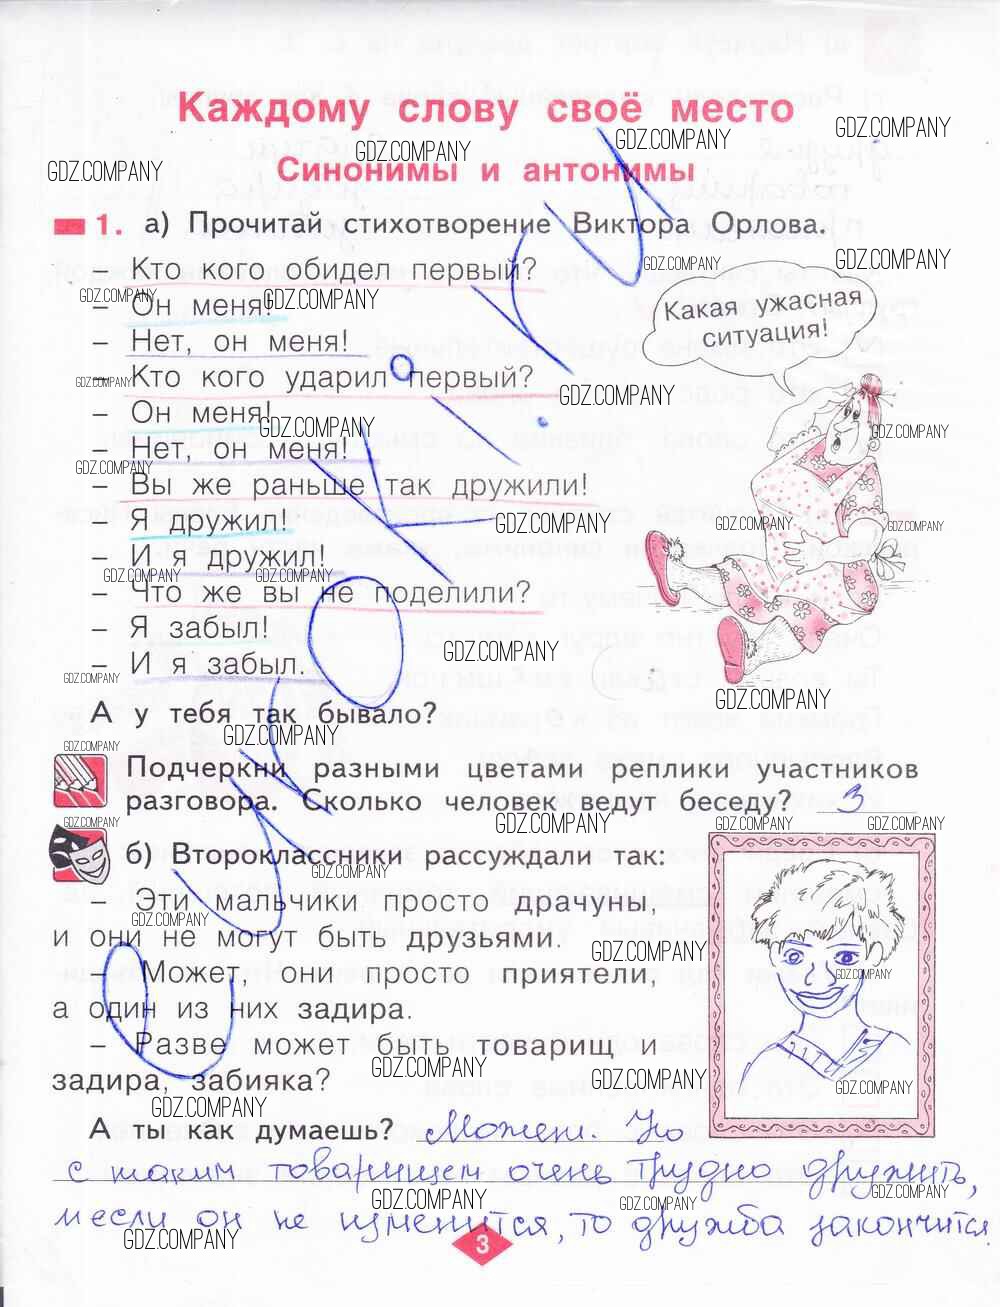 Каждому слову своё место
Синонимы и антонимы
1. а) Прочитай стихотворение Виктора Орлова.
– Кто кого обидел первый?
– Он меня!
– Нет, он меня!
– Кто кого ударил первый?
– Он меня!
– Нет, он меня!
– Вы же раньше так дружили!
– Я дружил!
– И я дружил!
– Что же вы не поделили?
– Я забыл!
– И я забыл.
Какая ужасная
ситуация!
А у тебя так бывало?
Подчеркни разными цветами реплики участников
разговора. Сколько человек ведут беседу? 3
б) Второклассники рассуждали так:
– Эти мальчики просто драчуны,
и они не могут быть друзьями.
– Может, они просто приятели,
а один из них задира.
– Разве может быть товарищ и
задира, забияка?
А ты как думаешь? Может. Но
с таким товарищем очень трудно дружить,
и если он не изменится, то дружба закончится.
3
GDZ.COMPANY